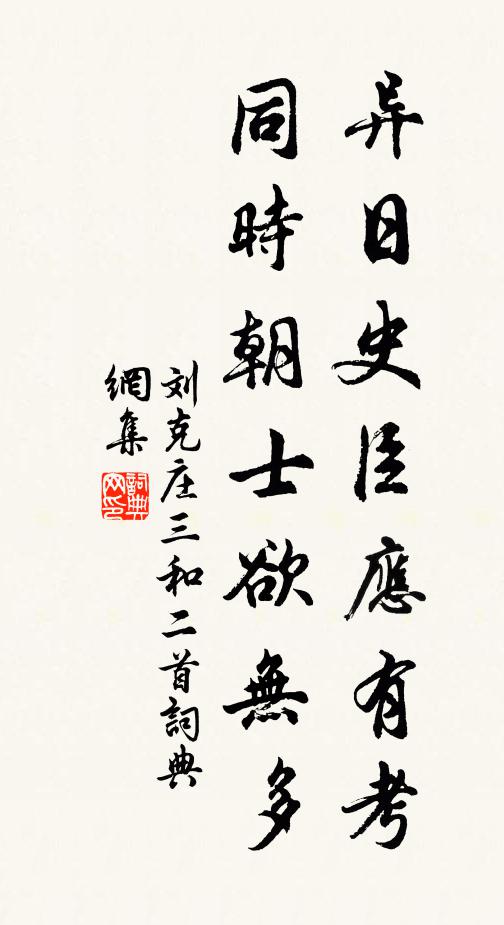 异日史臣應有考
同時朝士欲無多
刘克庄三和二首詞典
網集
詞典网印